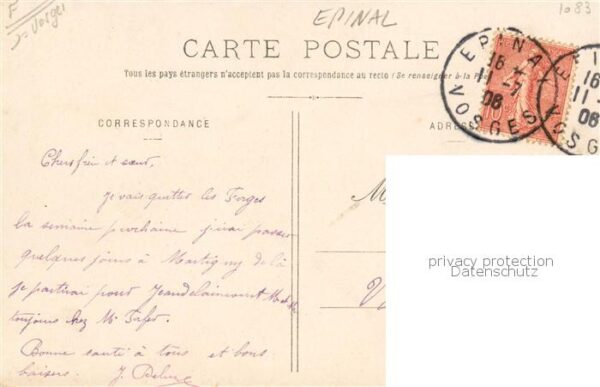 F
Vosges
EPINAL
1083
CARTE POSTALE
Tous les pays étrangers n'acceptent pas la correspondance au recto (Se renseigner à la Pos
CORRESPONDANCE
ADRESS
EPINAL
16
11 - 7
06
VOSGES
EPI
16
11 -
06
VOSGES
Chers frère et sœur,
Je vais quitter les Forges
la semaine prochaine j'irai passer
quelques jours à Martigny de là
je partirai pour Jeandelaincourt
toujours chez Mr
Bonne santé à tous et bons
baisers. J.
M
V
privacy protection
Datenschutz